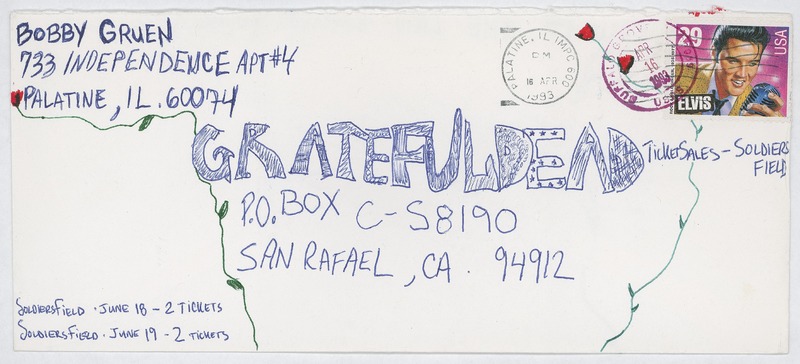 BOBBY GRUEN
733 INDEPENDENCE APT#4
PALATINE, IL. 60074
PALATINE, IL IMPC 600
PM
16 APR
1993
BUFFALO GROVE
APR
16
1993
USPS
29
USA
ELVIS
GRATEFUL DEAD
TICKET SALES - SOLDIERS
FIELD
P.O. BOX C-S8190
SAN RAFAEL, CA. 94912
SOLDIERSFIELD · JUNE 18 - 2 TICKETS
SOLDIERSFIELD · JUNE 19 - 2 TICKETS